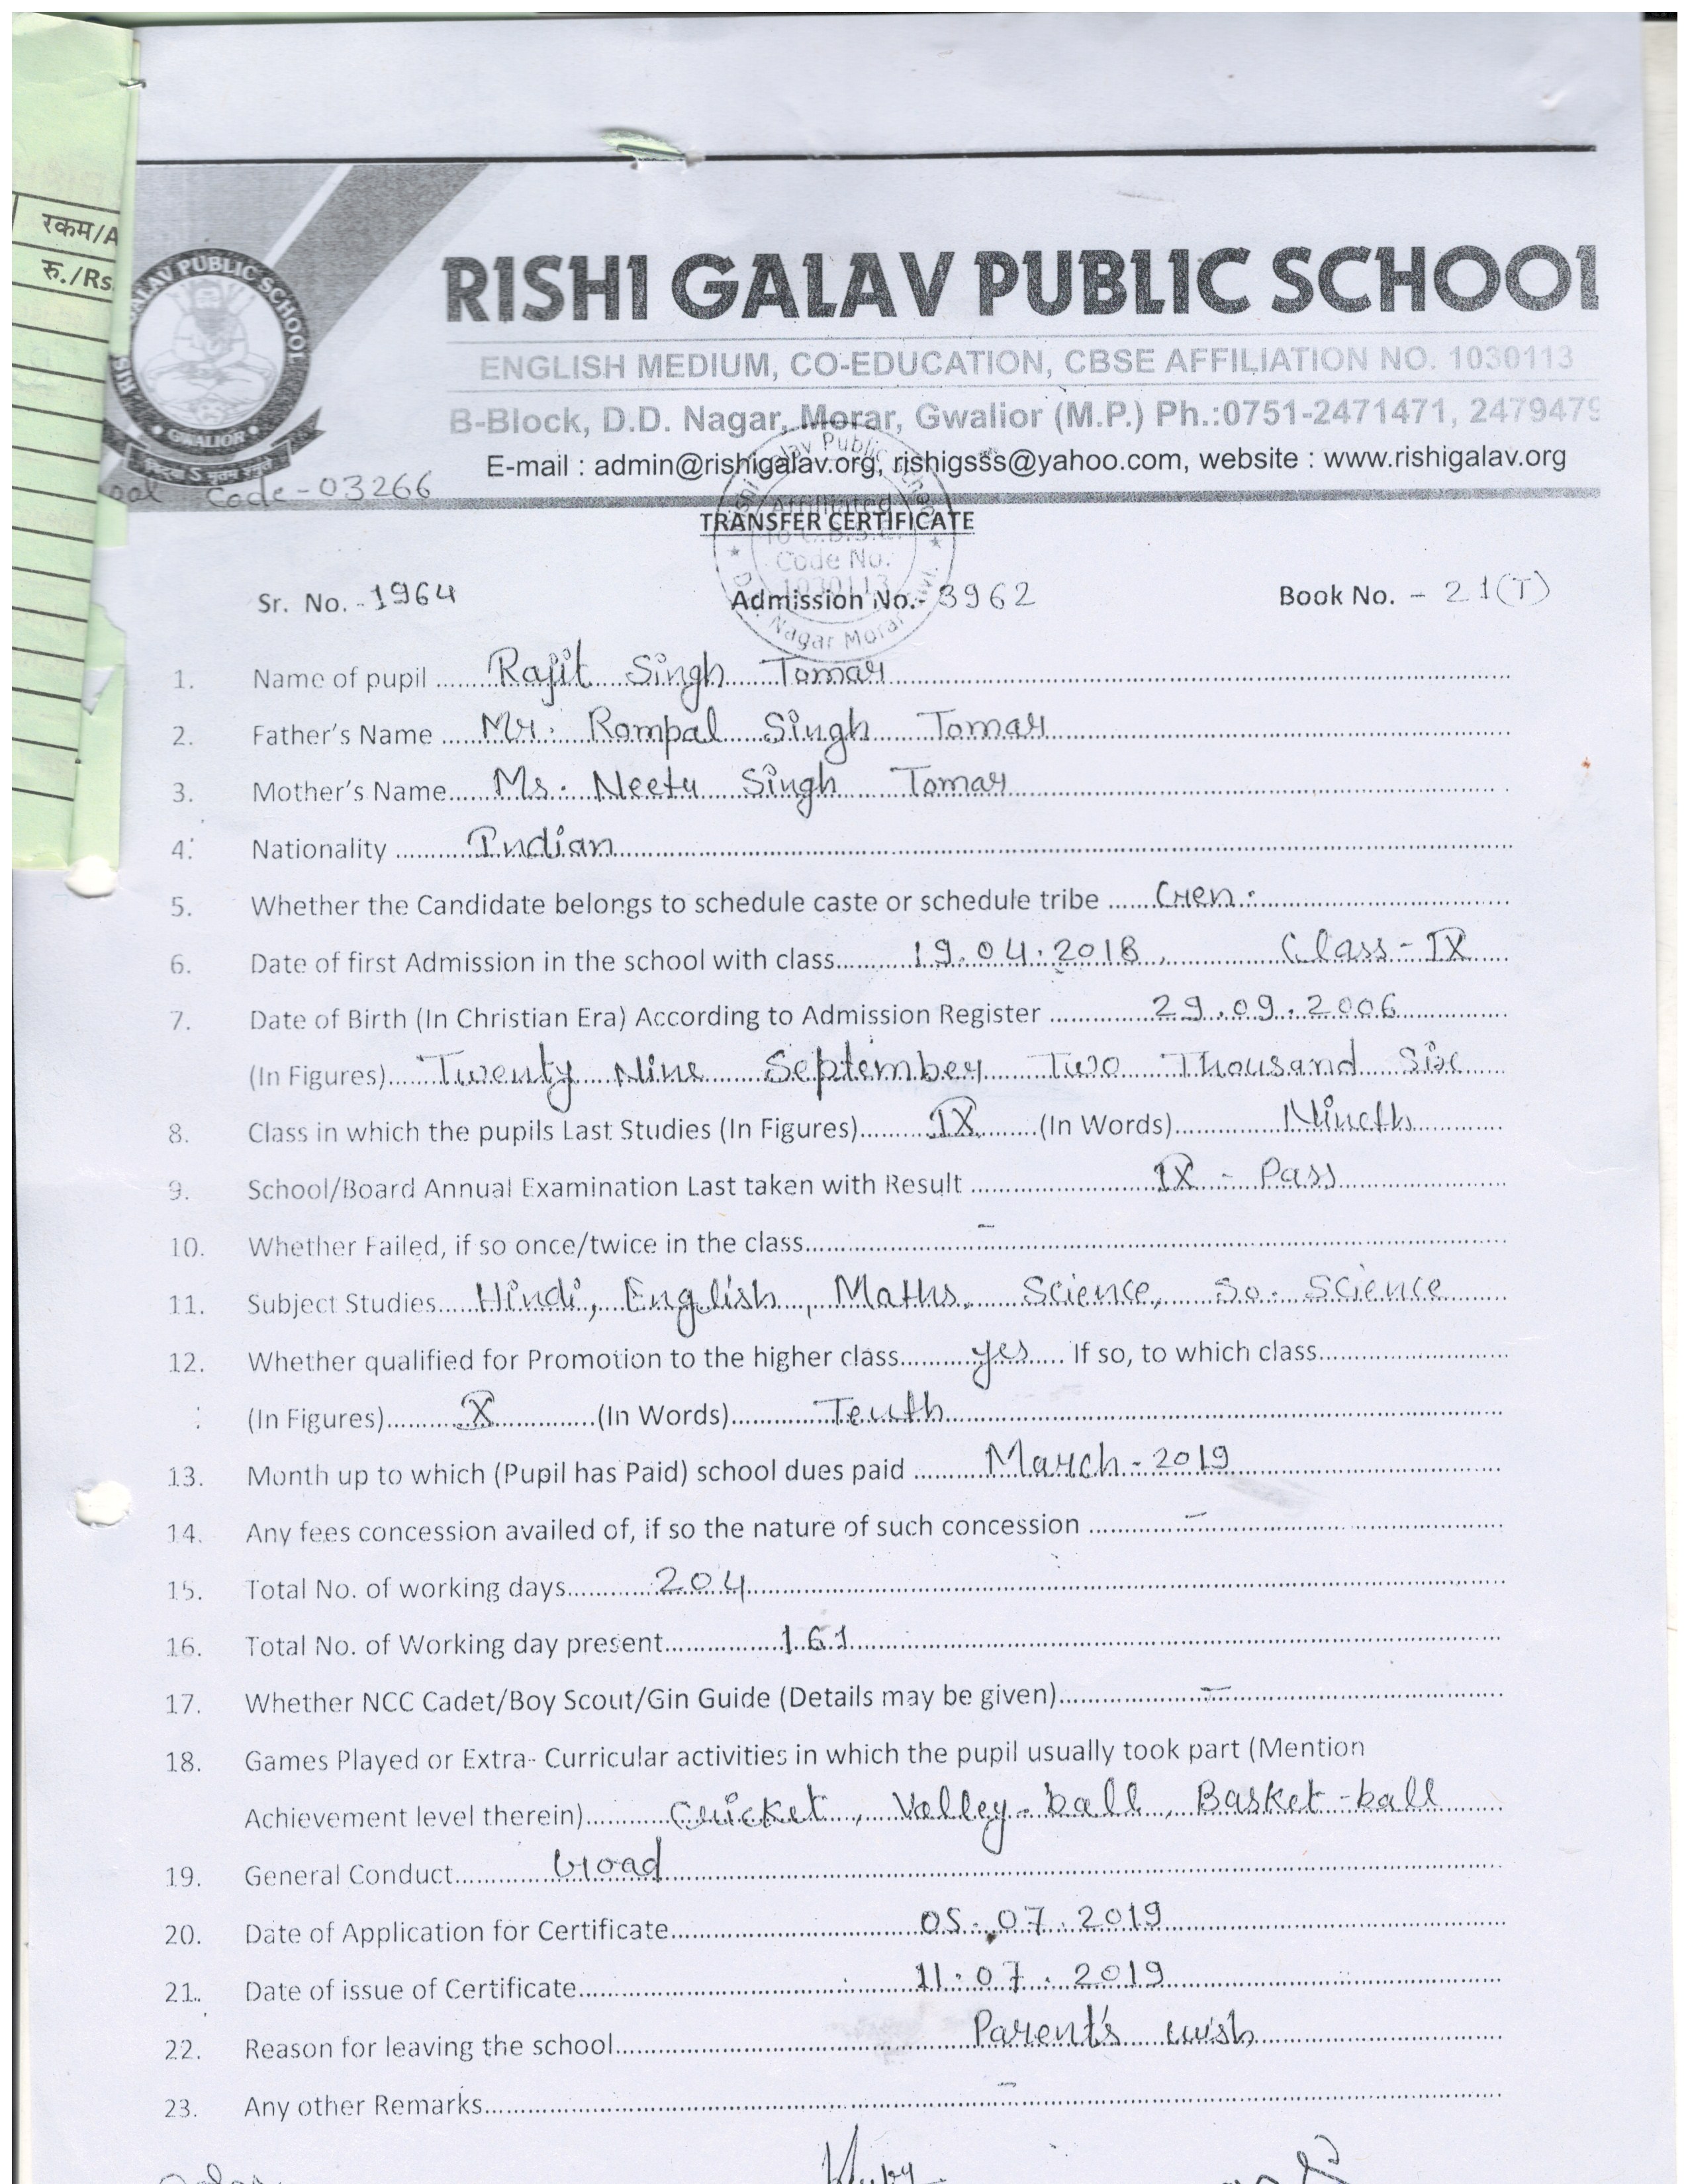 रकम/A
रु./Rs
RISHI GALAV PUBLIC SCHOOL
ENGLISH MEDIUM, CO-EDUCATION, CBSE AFFILIATION NO. 1030113
B-Block, D.D. Nagar, Morar, Gwalior (M.P.) Ph.:0751-2471471, 2479479
E-mail : admin@rishigalav.org, rishigsss@yahoo.com, website : www.rishigalav.org
GALAV PUBLIC SCHOOL
GWALIOR
Code-03266
TRANSFER CERTIFICATE
Affiliated
Code No.
1030113
Nagar Morar
Sr. No. - 1964 Admission No.- 3962 Book No. - 21(T)
1. Name of pupil Rajit Singh Tomar
2. Father's Name Mr. Rompal Singh Tomar
3. Mother's Name Ms. Neetu Singh Tomar
4. Nationality Indian
5. Whether the Candidate belongs to schedule caste or schedule tribe Gen.
6. Date of first Admission in the school with class 19.04.2018, Class-IX
7. Date of Birth (In Christian Era) According to Admission Register 29.09.2006
(In Figures) Twenty Nine September Two Thousand Six
8. Class in which the pupils Last Studies (In Figures) IX (In Words) Nineth
9. School/Board Annual Examination Last taken with Result IX - Pass
10. Whether Failed, if so once/twice in the class -
11. Subject Studies Hindi, English, Maths, Science, So. Science
12. Whether qualified for Promotion to the higher class yes If so, to which class
(In Figures) X (In Words) Tenth
13. Month up to which (Pupil has Paid) school dues paid March-2019
14. Any fees concession availed of, if so the nature of such concession -
15. Total No. of working days 204
16. Total No. of Working day present 161
17. Whether NCC Cadet/Boy Scout/Gin Guide (Details may be given) -
18. Games Played or Extra- Curricular activities in which the pupil usually took part (Mention
Achievement level therein) Cricket, Volley-ball, Basket-ball
19. General Conduct Good
20. Date of Application for Certificate 05.07.2019
21. Date of issue of Certificate 11.07.2019
22. Reason for leaving the school Parent's wish
23. Any other Remarks -